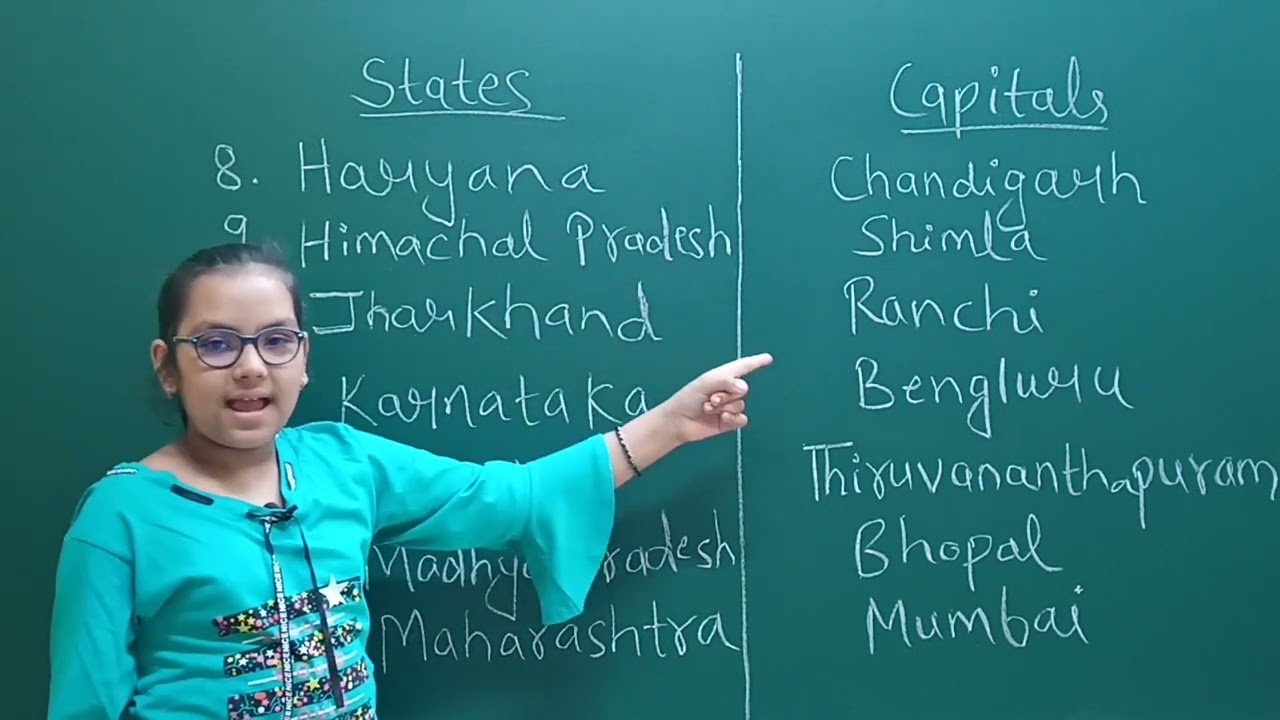 States Capitals
8. Haryana Chandigarh
9 Himachal Pradesh Shimla
Jharkhand Ranchi
Karnataka Bengluru
Thiruvananthapuram
Bhopal
Maharashtra Mumbai